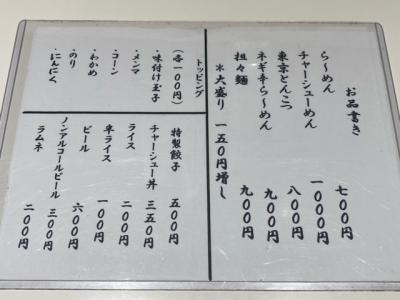 お品書き
ら〜めん 七〇〇円
チャーシューめん 一〇〇〇円
東京とんこつ 八〇〇円
ネギ辛ら〜めん 九〇〇円
担々麺 九〇〇円
＊大盛り 一五〇円増し
トッピング
(各一〇〇円)
・味付け玉子
・メンマ
・コーン
・わかめ
・のり
・にんにく
特製餃子 五〇〇円
チャーシュー丼 三五〇円
ライス 二〇〇円
半ライス 一〇〇円
ビール 六〇〇円
ノンアルコールビール 三〇〇円
ラムネ 二〇〇円